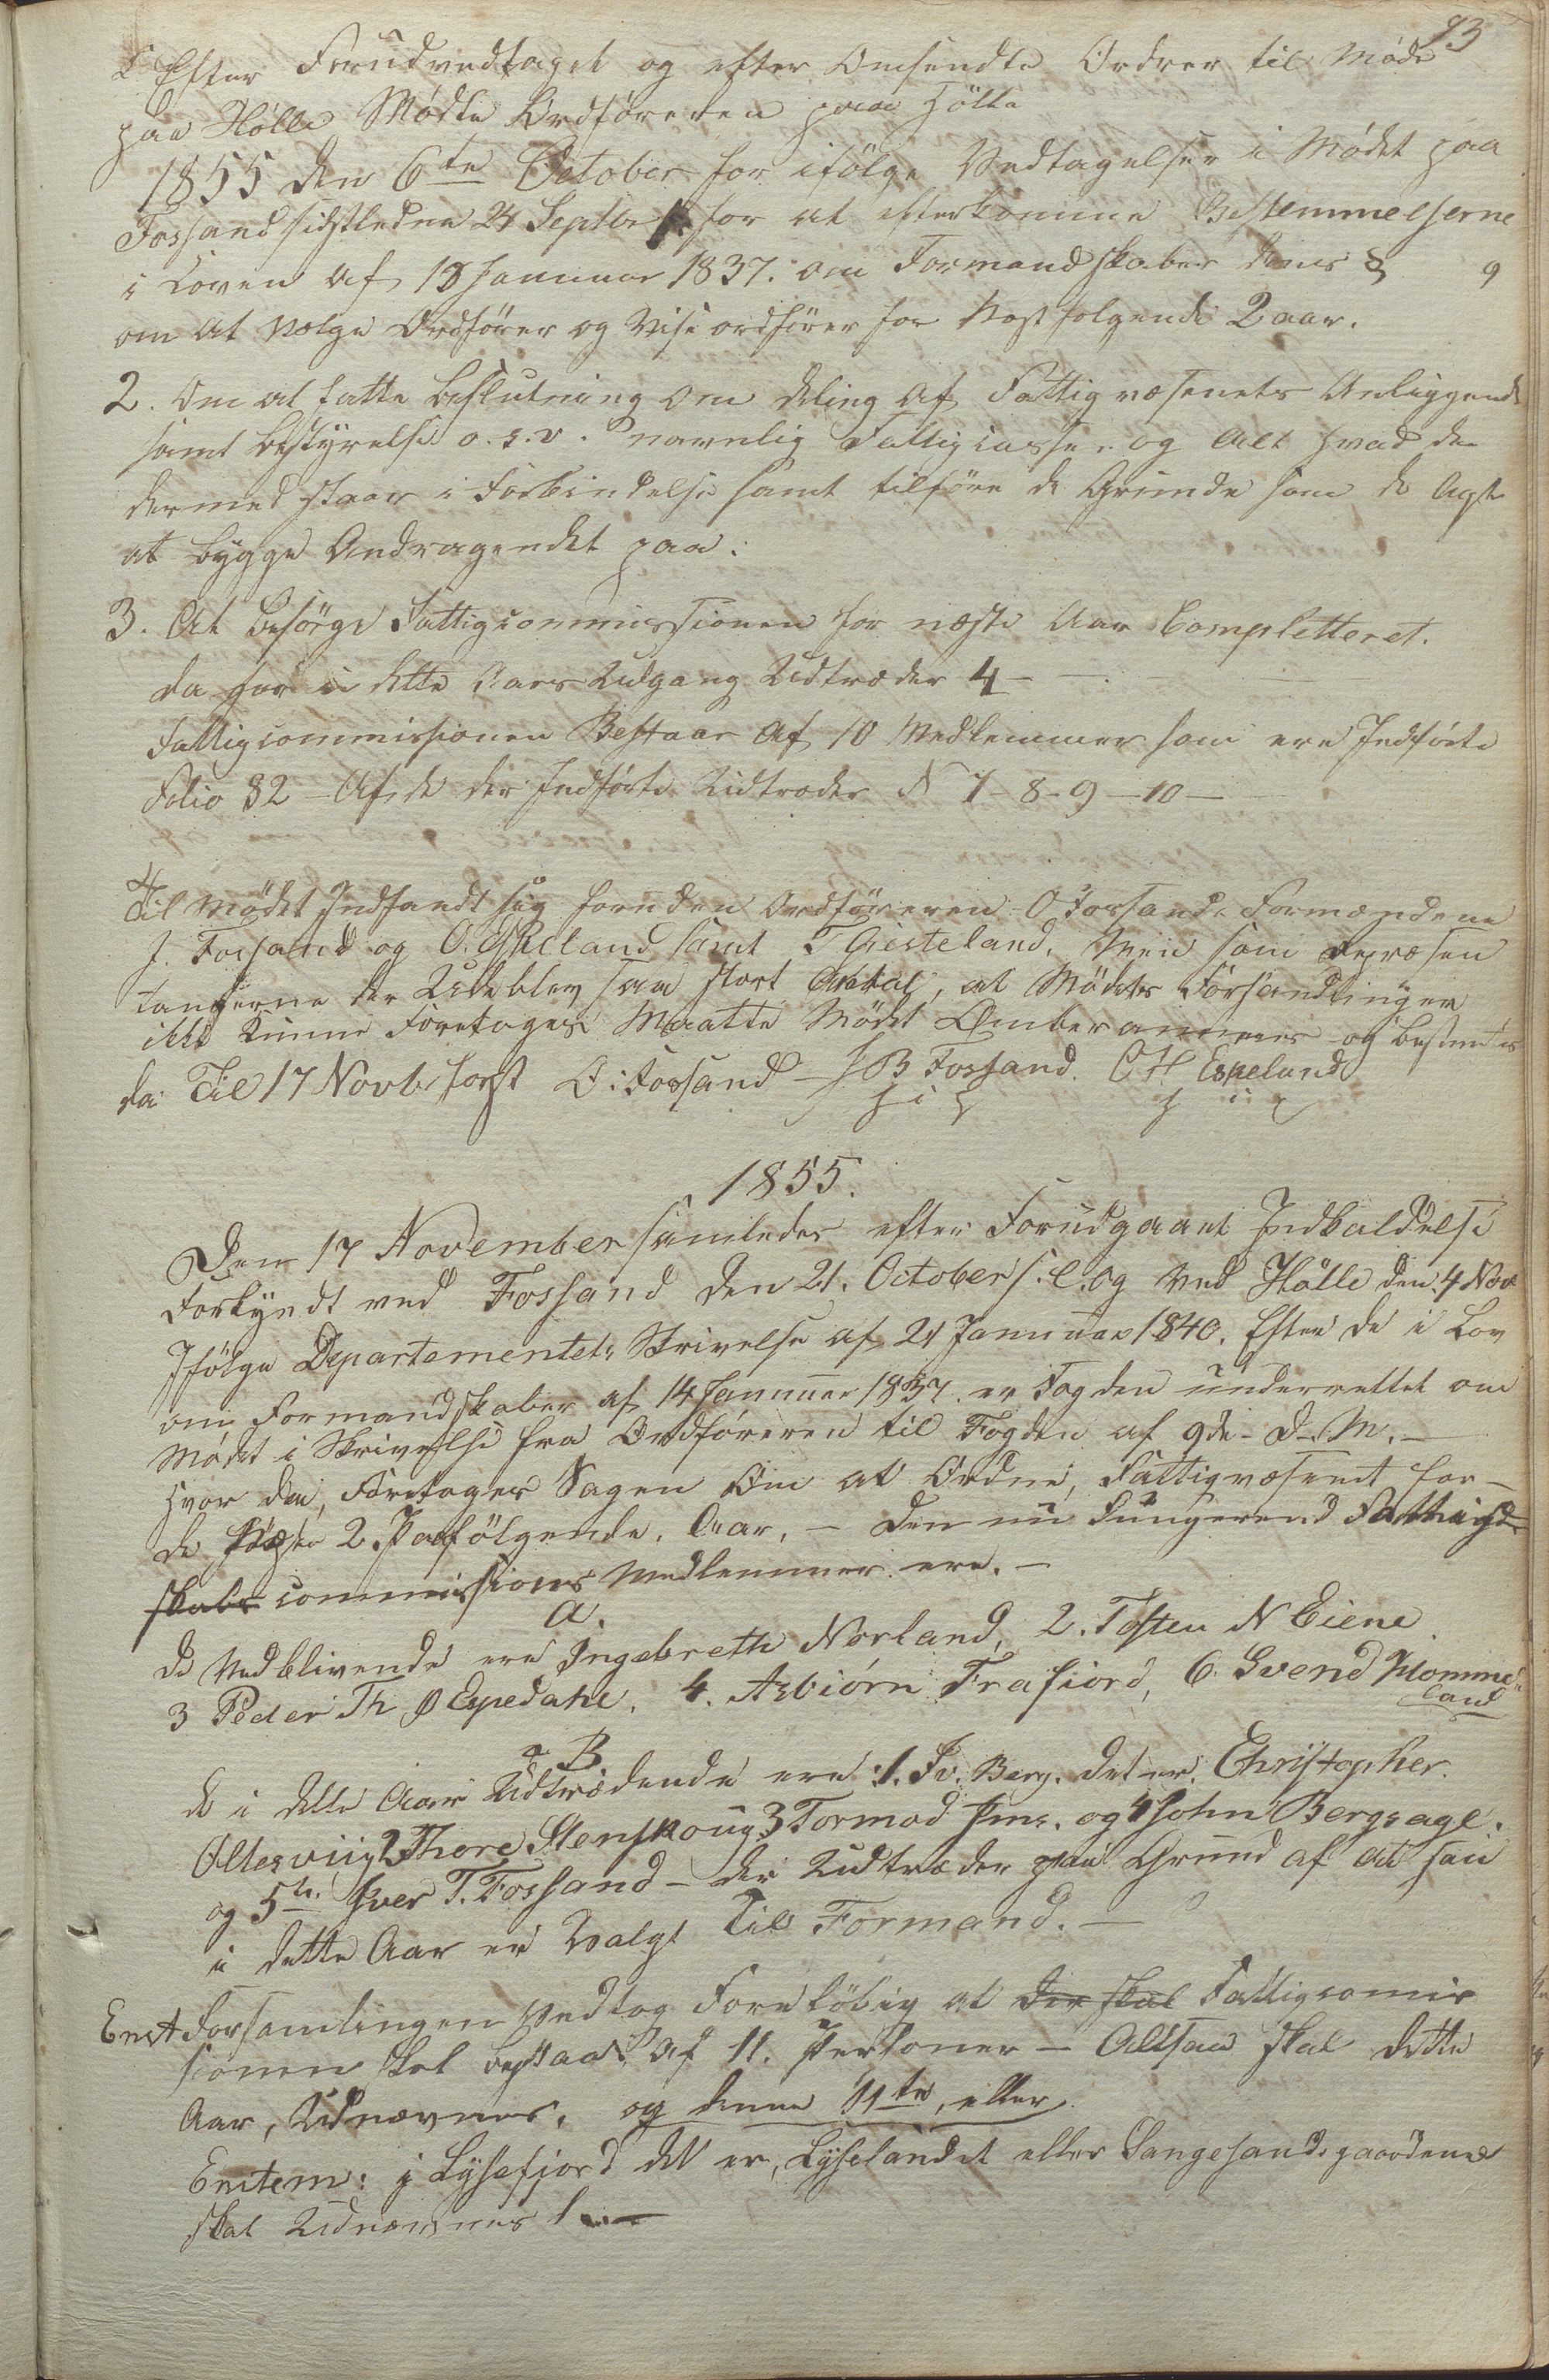 93
1 Efter Forudvedtaget og efter Omsendte Ordrer til Møde
paa Hølle Mødte Ordføreren paa Hølle
1855 den 6te October for ifølge Vedtagelser i Mødet paa
Fossand sidstleden 24 Septbr for at efterkomme Bestemmelserne
i Loven af 13 Januar 1837. om Formandskaber dens § 9
om at vælge Ordfører og Vise ordfører for Nestfølgende 2 aar.
2. Om at fatte Beslutning om deling af Fattigvæsenets Anliggende
samt Bestyrelse o.s.v. navnlig Fattigcasse. og Alt hvad der
dermed staar i Forbindelse samt tilføre de Grunde som de Agte
at bygge Andragendet paa:
3. At besørge Fattigcommissionen for næste Aar Completteret.
da her i dette Aars Udgang Udtræder 4 -
Fattigcommissionen Bestaar af 10 Medlemmer som ere Indførte
Folio 82 - Af de der Indførte Udtræder N 7-8-9-10-
4
Til Mødet Indfandt sig foruden Ordføreren O Fossand. Formændene
J. Fossand og O. Eskeland samt T Giesteland, Men som Repræsen
tanterne der Udeblev saa stort Antal, at Mødets Forhandlinger
ikke kunne Foretages Maatte Mødet Omberammes og bestemtes
da Til 17 Novb. først O: Fossand - J B Fossand. C H Espeland
1855.
Den 17 November samledes efter Forudgaaet Indkaldelse
Forkyndt ved Fossand den 21. October s.l. og ved Hølle den 4 Nov
Ifølge Departementets Skrivelse af 21 Januar 1840. Efter de i Lov
om Formandskaber af 14 Januar 1837. er Fogden underrettet om
Mødet i Skrivelse fra Ordføreren til Fogden af 9de - d. M. -
hvor da, Foretages Sagen Om at Ordne, Fattigvæsenet for -
de næste 2. Paafølgende. Aar. - Den nu Fungerend Fattigd-
skabs commissions Medlemmer ere. -
a.
de Vedblivende ere Ingebreth Norland, 2. Tosten N Eiene
3 Peder Th Ø Espedahl. 4. Asbiörn Frafiord, 6. Svend Momme-
land
B
de i dette Aar Udtrædende ere: 1. Fv. Berg. det er. Christopher.
Oltesviig 2 Thore Stenskoug 3 Tormod Hms. og 4 John Bergsagl.
og 5te Iver T. Fossand - der Udtræder paa Grund af at han
i dette Aar er Valgt til Formand. -
Enst Forsamlingen Vedtog Foreløbig at der skal Fattigcomis
sionen skal bestaa af 11. Personer - Altsaa skal dette
Aar, Udnævnes, og denne 11te, eller
Enstem: i Lysefjord det er, Lyselandet eller Langesandsgaardene
skal Udnævnes 1 -